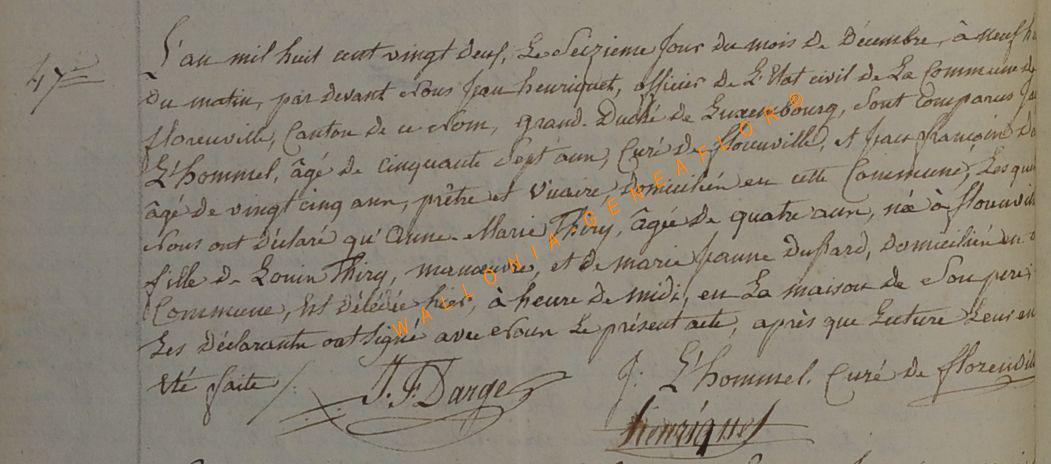 47me
L'an mil huit cent vingt deux, Le Seizieme jour du mois de Décembre, à neuf h
Du matin, par devant Nous Jean henriquet, officier de L'Etat civil de La Commune de
florenville, Canton de ce Nom, grand-Duché de Luxembourg, Sont Comparus J
L'hommel, âgé de cinquante Sept ans, Curé de florenville, et jean françois D
âgé de vingt cinq ans, prêtre et Vicaire, domiciliés en cette Commune, Lesque
Nous ont Déclaré qu'anne-Marie Thiry, âgée de quatre ans, née à florenvil
fille de Louis Thiry, manoeuvre, et de marie jeanne Dussard, domiciliés en
Commune, Est Décédée hier, à heure de midi, en La maison de Son pere;
Les Déclarants ont Signé avec Nous Le présent acte, après que Lecture Leur en
Eté faite /.
J. F. Darge
J: L'hommel. Curé de florenvill
Henriquet
WALLONIA-GENEAFLOR©